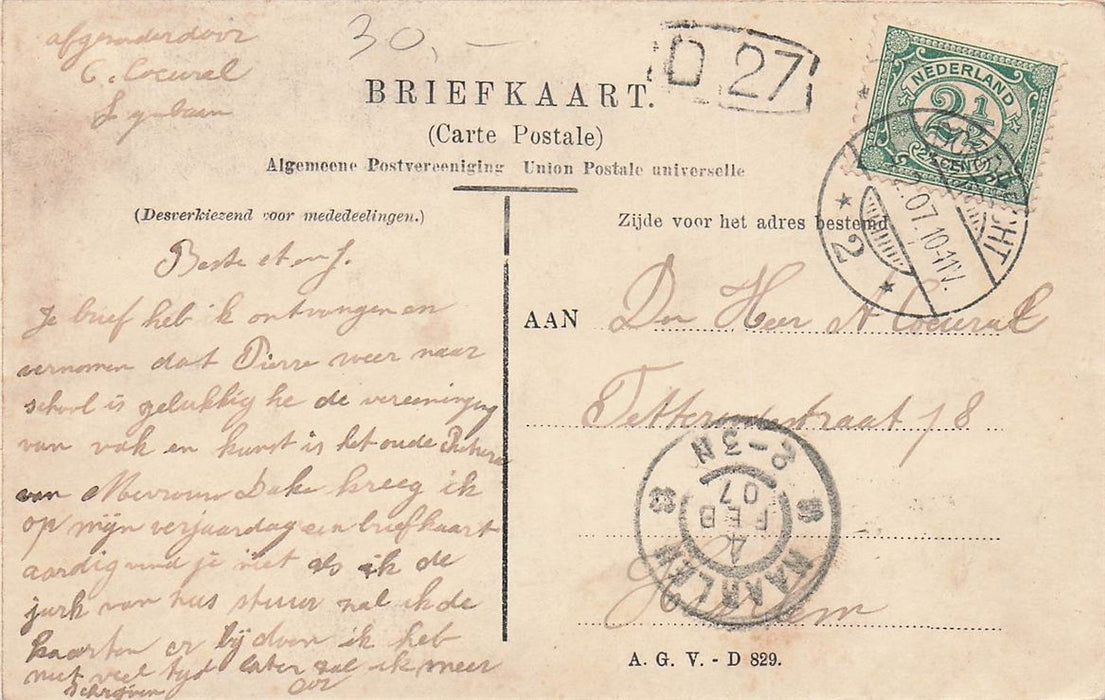 afgezonden door
C. Coeurel
30,-
D 27
NEDERLAND
2½
CENT
BRIEFKAART.
(Carte Postale)
Algemeene Postvereeniging Union Postale universelle
(Desverkiezend voor mededeelingen.)
Zijde voor het adres bestemd
2
07.10-11V.
Beste
Je brief heb ik ontvangen en
vernomen dat Pierre weer naar
school is gelukkig he de vereeniging
van vak en kunst is het oude
van Mevrouw Dake kreeg ik
op mijn verjaardag een briefkaart
aardig vind je niet als ik de
jurk van hus stuur zal ik de
kaarten er bij doen ik heb
niet veel tijd later zal ik meer
schrijven
AAN Den Heer A Coeurel
straat 18
HAARLEM
4
FEB
07
2-3N
Haarlem
A. G. V. - D 829.